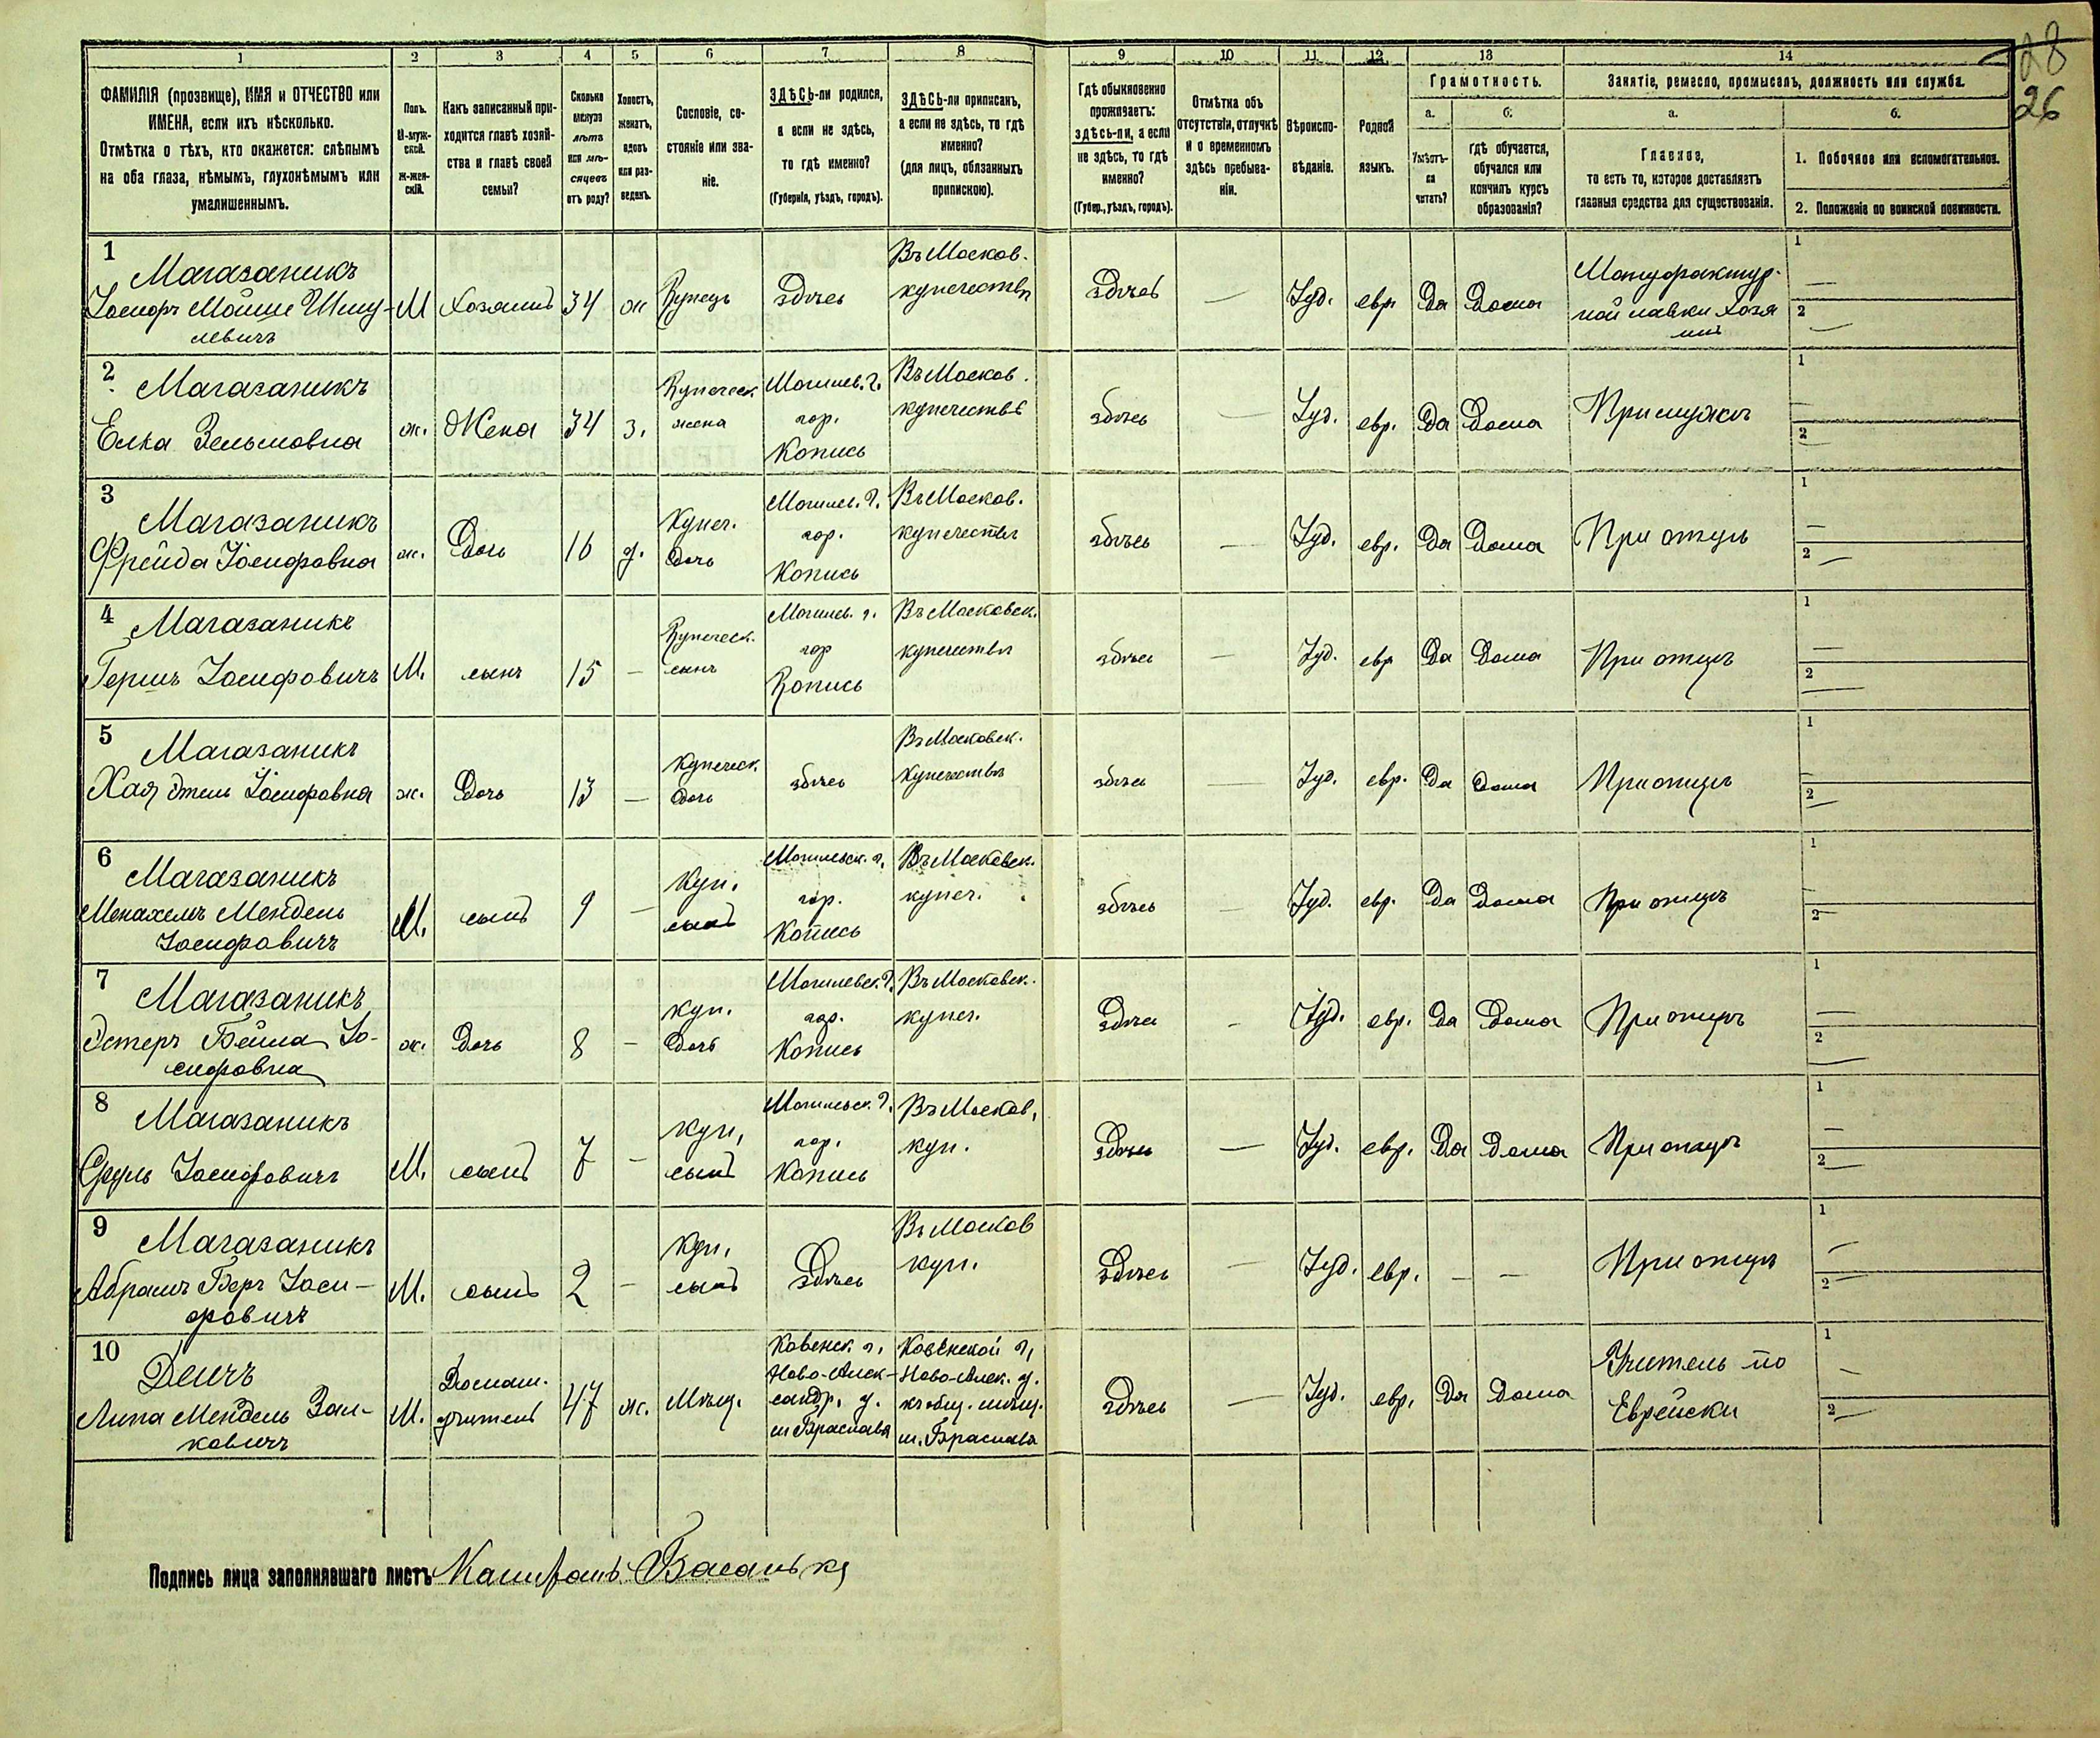 28
26
1
2
3
4
5
6
7
8
9
10
11
12
13
14
ФАМИЛІЯ (прозвище), ИМЯ и ОТЧЕСТВО или
ИМЕНА, если ихъ нѣсколько.
Отмѣтка о тѣхъ, кто окажется: слѣпымъ
на оба глаза, нѣмымъ, глухонѣмымъ или
умалишеннымъ.
Полъ.
М-муж-
ской.
Ж-жен-
скій.
Какъ записанный при-
ходится главѣ хозяй-
ства и главѣ своей
семьи?
Сколько
минуло
лѣтъ
или мѣ-
сяцевъ
отъ роду?
Холостъ,
женатъ,
вдовъ
или раз-
веденъ.
Сословіе, со-
стояніе или зва-
ніе.
ЗДѢСЬ-ли родился,
а если не здѣсь,
то гдѣ именно?
(Губернія, уѣздъ, городъ).
ЗДѢСЬ-ли приписанъ,
а если не здѣсь, то гдѣ
именно?
(для лицъ, обязанныхъ
припискою).
Гдѣ обыкновенно
проживаетъ:
здѣсь-ли, а если
не здѣсь, то гдѣ
именно?
(Губер., уѣздъ, городъ).
Отмѣтка объ
отсутствіи, отлучкѣ
и о временномъ
здѣсь пребыва-
ніи.
Вѣроиспо-
вѣданіе.
Родной
языкъ.
Грамотность.
а.
Умѣетъ-
ли
читать?
б.
гдѣ обучается,
обучался или
кончилъ курсъ
образованія?
Занятіе, ремесло, промыселъ, должность или служба.
а.
Главное,
то есть то, которое доставляетъ
главныя средства для существованія.
б.
1. Побочное или вспомогательное.
2. Положеніе по воинской повинности.
1
Магазаникъ
Іосифъ Мойше Шму-
левичъ
М
Хозяинъ
34
ж
Купецъ
Здѣсь
Въ Москов.
купечествѣ
Здѣсь
—
Іуд.
евр.
Да
Дома
Мануфактур-
ной лавки хозя
инъ
1
—
2
—
2
Магазаникъ
Елка Зельмовна
ж.
Жена
34
з.
Купеческ.
жена
Могилев. г.
гор.
Копысь
Въ Москов.
купечествѣ
здѣсь
—
Іуд.
евр.
Да
Дома
При мужѣ
1
—
2
—
3
Магазаникъ
Фрейда Іосифовна
ж.
Дочь
16
д.
Купеч.
Дочь
Могилев. г.
гор.
Копысь
Въ Москов.
купечествѣ
здѣсь
—
Іуд.
евр.
Да
Дома
При отцѣ
1
—
2
—
4
Магазаникъ
Гершъ Іосифовичъ
М.
сынъ
15
—
Купеческ.
сынъ
Могилев. г.
гор
Копысь
Въ Московск.
купечествѣ
здѣсь
—
Іуд.
евр
Да
Дома
При отцѣ
1
—
2
—
5
Магазаникъ
Хая Этель Іосифовна
ж.
Дочь
13
—
Купеческ.
Дочь
здѣсь
Въ Московск.
Купечествѣ
здѣсь
—
Іуд.
евр.
Да
Дома
При отцѣ
1
—
2
—
6
Магазаникъ
Менахемъ Мендель
Іосифовичъ
М.
сынъ
9
—
Куп.
сынъ
Могилевск. г.
гор.
Копысь
Въ Московск.
купеч.
здѣсь
—
Іуд.
евр.
Да
Дома
При отцѣ
1
—
2
—
7
Магазаникъ
Эстеръ Бейла Іо-
сифовна
ж.
Дочь
8
—
куп.
Дочь
Могилевск. г.
гор.
Копысь
Въ Московск.
купеч.
Здѣсь
-
Іуд.
евр.
Да
Дома
При отцѣ
1
—
2
—
8
Магазаникъ
Сруль Іосифовичъ
М.
сынъ
7
—
куп.
сынъ
Могилевск. г.
гор.
Копысь
Въ Москов.
куп.
Здѣсь
—
Іуд.
евр.
Да
Дома
При отцѣ
1
—
2
—
9
Магазаникъ
Абрамъ Беръ Іоси-
фовичъ
М.
сынъ
2
—
куп.
сынъ
Здѣсь
Въ Москов
куп.
Здѣсь
—
Іуд.
евр.
—
—
При отцѣ
1
—
2
—
10
Дейчъ
Липа Мендель Зал-
кович
М.
Домаш.
учитель
47
ж.
Мѣщ.
Ковенск. г.
Ново-Алек-
сандр. у.
м Браслава
Ковенской г.
Ново-Алек. у.
къ общ. мѣщ.
м. Браслава
Здѣсь
—
Іуд.
евр.
Да
Дома
Учитель по
Еврейски
1
—
2
—
Подпись лица заполнявшаго листъ